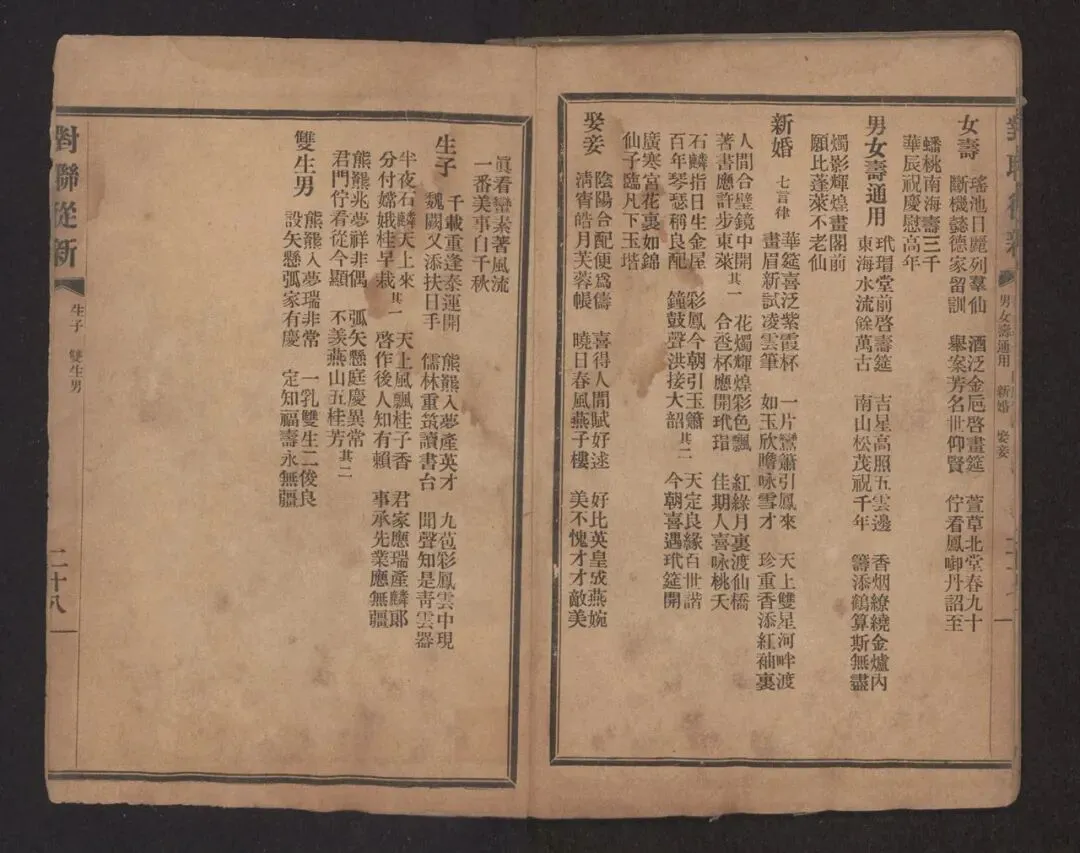 男女壽通用 新婚 娶妾
女壽
瑤池日麗列羣仙 酒泛金巵啓畫筵 萱草北堂春九十
斷機懿德家留訓 舉案芳名世仰賢 佇看鳳啣丹詔至
蟠桃南海壽三千
華辰祝慶慰高年
男女壽通用
玳瑁堂前啓壽筵 吉星高照五雲邊 香烟繚繞金爐內
東海水流餘萬古 南山松茂祝千年 籌添鶴算斯無盡
燭影輝煌畫閣前
願比蓬萊不老仙
新婚 七言律
華筵喜泛紫霞杯 一片鸞簫引鳳來 天上雙星河畔渡
畫眉新試凌雲筆 如玉欣瞻咏雪才 珍重香添紅袖裏
人間合璧鏡中開 其一 花燭輝煌彩色飄 紅綠月裏渡仙橋
著書應許步東萊 合巹杯應開玳瑁 佳期人喜咏桃夭
石麟指日生金屋 彩鳳今朝引玉簫 天定良緣百世諧
百年琴瑟稱良配 鐘鼓聲洪接大韶 其二 今朝喜遇玳筵開
廣寒宮花裏如錦
仙子臨凡下玉堦
娶妾
陰陽合配便爲儔 喜得人間賦好逑 好比英皇成燕婉
淸宵皓月芙蓉帳 曉日春風燕子樓 美不愧才才敵美
眞看蠻素著風流
一番美事白千秋
生子
千載重逢泰運開 熊熊入夢產英才 九苞彩鳳雲中現
魏闕又添扶日手 儒林重築讀書台 聞聲知是靑雲器
半夜石麟天上來 其一 天上風飄桂子香 君家應瑞產麟郞
分付嫦娥桂早栽 啓作後人知有賴 事承先業應無疆
熊熊兆夢祥非偶 弧矢懸庭慶異常
君門佇看從今顯 不羨燕山五桂芳 其二
雙生男
熊熊入夢瑞非常 一乳雙生二俊良
設矢懸弧家有慶 定知福壽永無疆
對聯從新 生子 雙生男 二十八